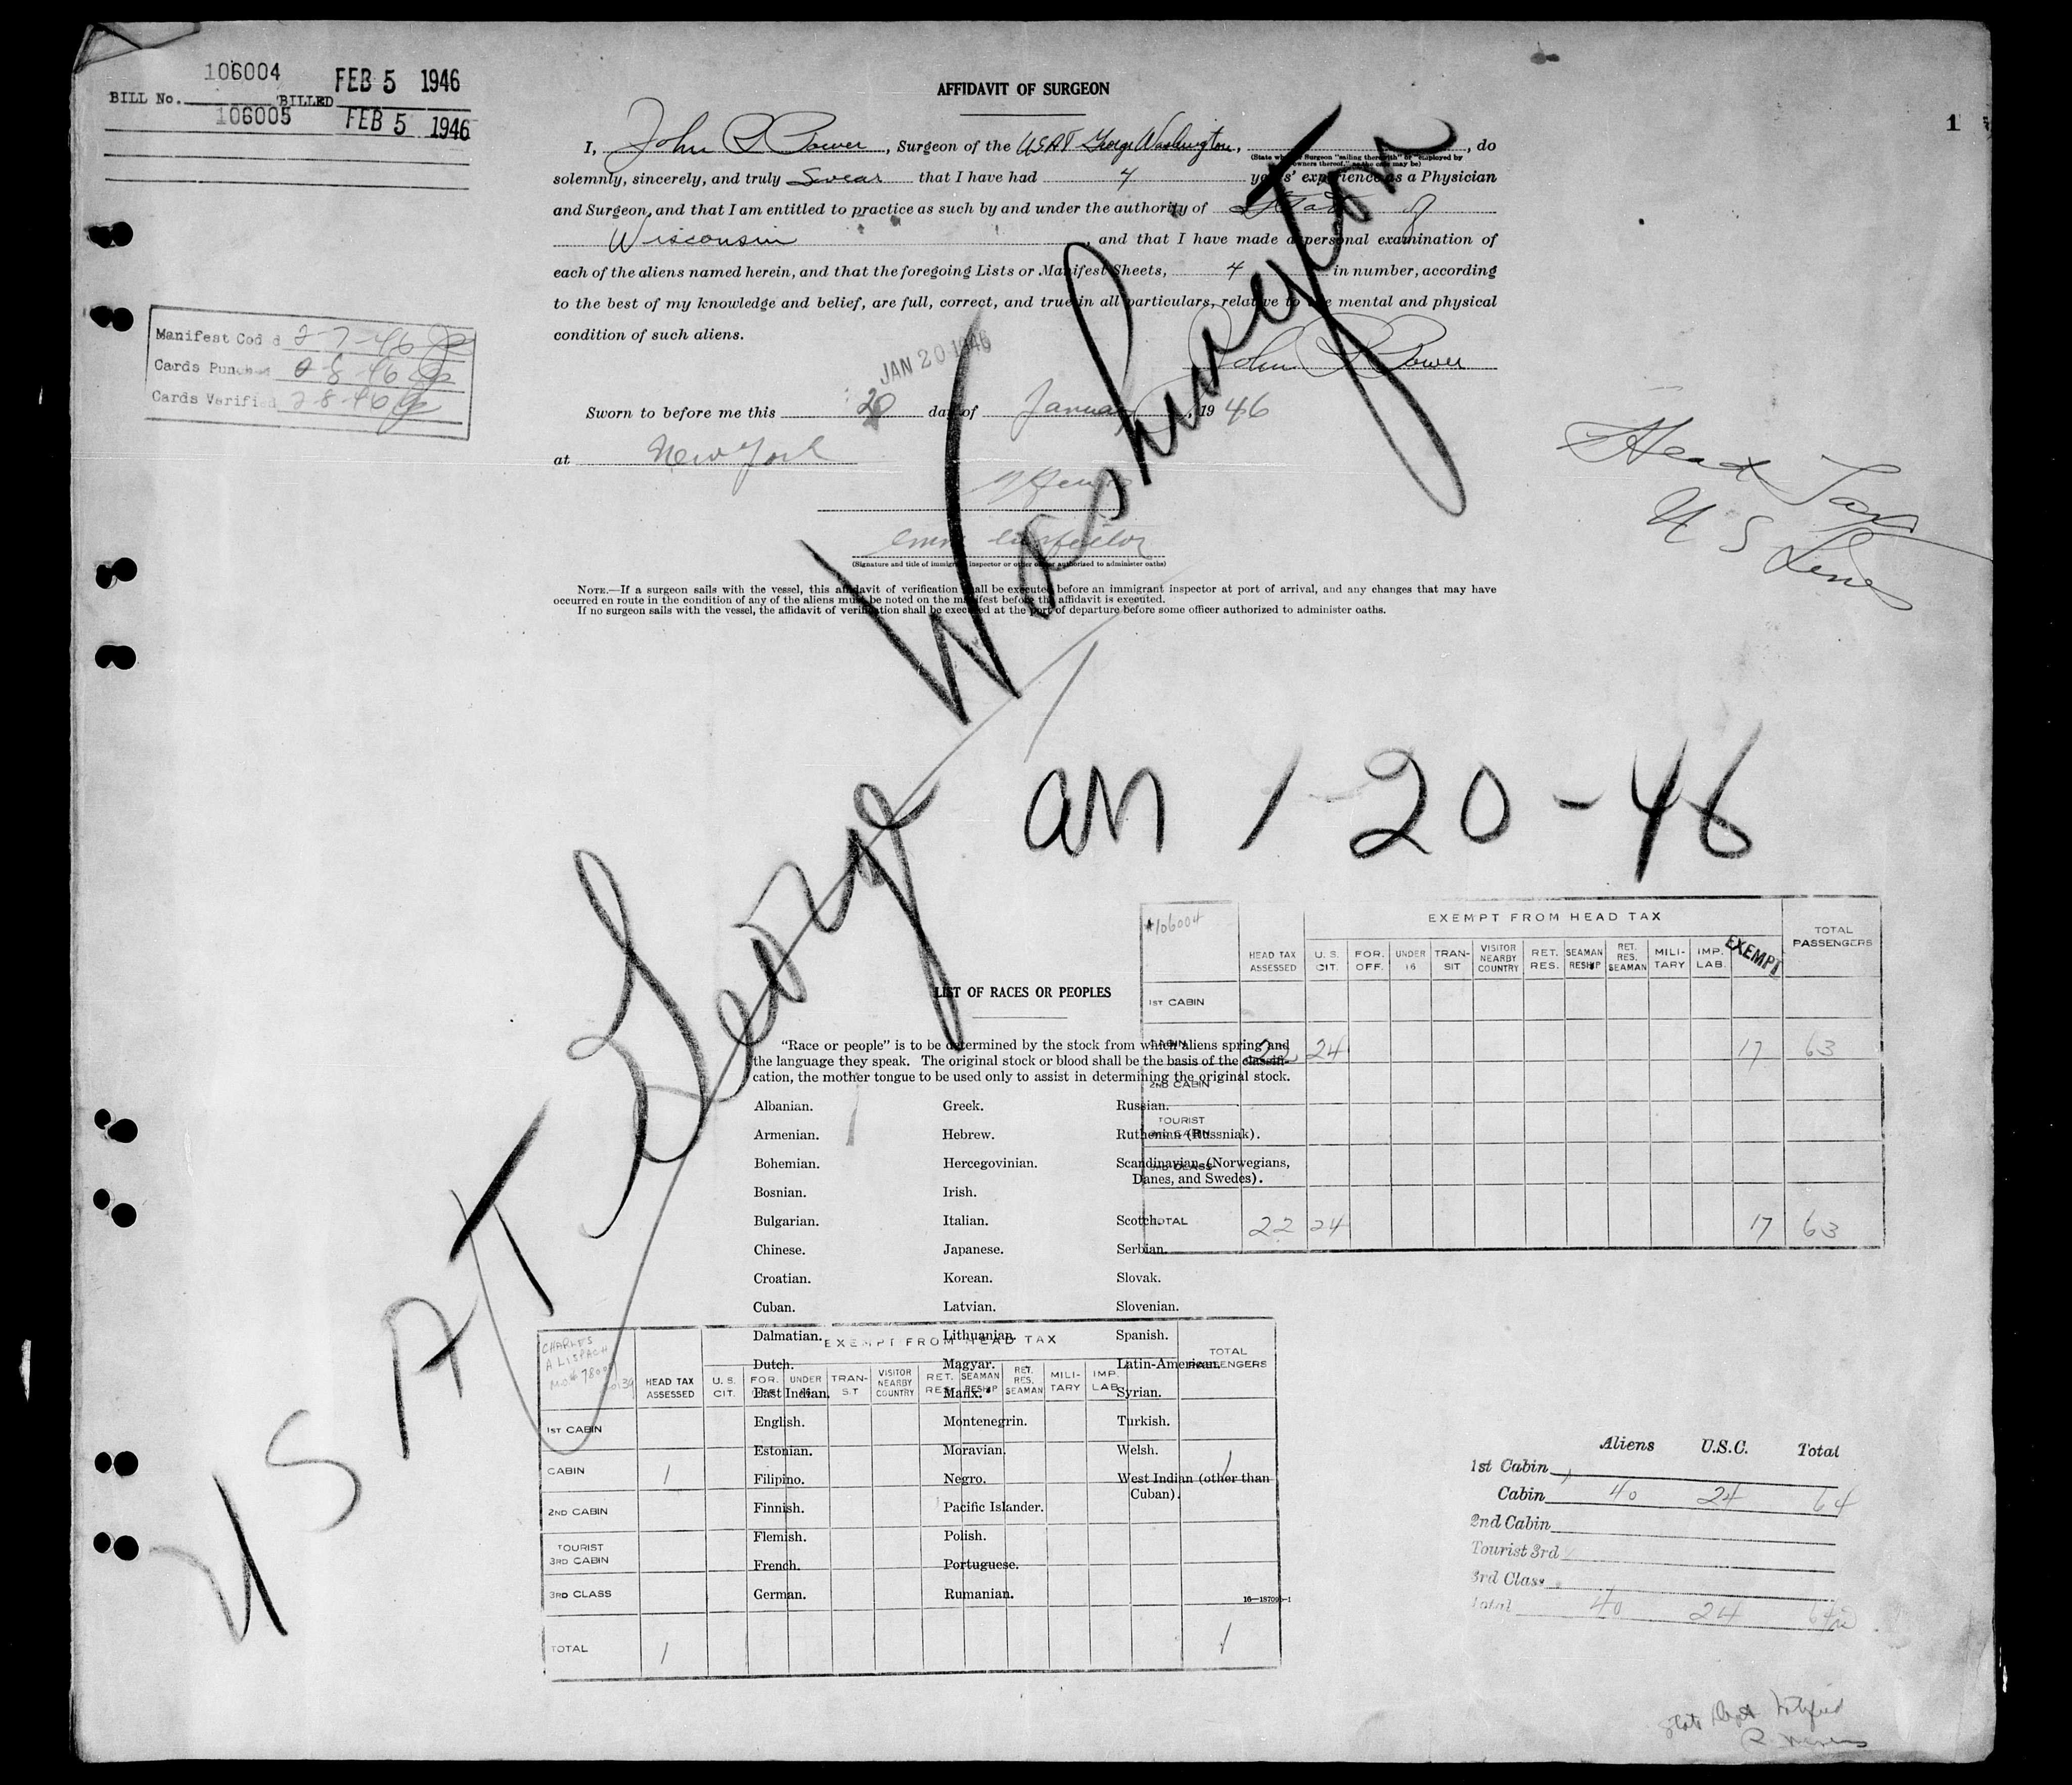 106004 FEB 5 1946
BILL No. BILLED
106005 FEB 5 1946
AFFIDAVIT OF SURGEON
1
I, John R Power, Surgeon of the USAT George Washington, , do
(State whether Surgeon "sailing therewith" or "employed by owners thereof," as the case may be)
solemnly, sincerely, and truly Swear that I have had 4 years' experience as a Physician
and Surgeon, and that I am entitled to practice as such by and under the authority of State of
Wisconsin, and that I have made a personal examination of
each of the aliens named herein, and that the foregoing Lists or Manifest Sheets, 4 in number, according
to the best of my knowledge and belief, are full, correct, and true in all particulars, relative to the mental and physical
condition of such aliens.
John R Power
Manifest Cod d 2-7-46
Cards Punched 2-8-46
Cards Verified 2-8-46
JAN 20 1946
Sworn to before me this 20 day of January, 19 46
at New York
Imm Inspector
(Signature and title of immigrant inspector or other officer authorized to administer oaths)
Head Tax
U S Lines
NOTE.—If a surgeon sails with the vessel, this affidavit of verification shall be executed before an immigrant inspector at port of arrival, and any changes that may have
occurred en route in the condition of any of the aliens must be noted on the manifest before the affidavit is executed.
If no surgeon sails with the vessel, the affidavit of verification shall be executed at the port of departure before some officer authorized to administer oaths.
USAT George Washington
an 1-20-46
#106004
EXEMPT FROM HEAD TAX
HEAD TAX ASSESSED U. S. CIT. FOR. OFF. UNDER 16 TRAN-SIT VISITOR NEARBY COUNTRY RET. RES. SEAMAN RESHIP RET. RES. SEAMAN MILI-TARY IMP. LAB. EXEMPT TOTAL PASSENGERS
1ST CABIN
CABIN 22 24 17 63
2ND CABIN
TOURIST
3RD CABIN
3RD CLASS
TOTAL 22 24 17 63
LIST OF RACES OR PEOPLES
"Race or people" is to be determined by the stock from which aliens spring and
the language they speak. The original stock or blood shall be the basis of the classifi-
cation, the mother tongue to be used only to assist in determining the original stock.
Albanian. Greek. Russian.
Armenian. Hebrew. Ruthenian (Russniak).
Bohemian. Hercegovinian. Scandinavian (Norwegians,
Danes, and Swedes).
Bosnian. Irish.
Bulgarian. Italian. Scotch.
Chinese. Japanese. Serbian.
Croatian. Korean. Slovak.
Cuban. Latvian. Slovenian.
Dalmatian. Lithuanian. Spanish.
Dutch. Magyar. Latin-American.
East Indian. Manx. Syrian.
English. Montenegrin. Turkish.
Estonian. Moravian. Welsh.
Filipino. Negro. West Indian (other than
Cuban).
Finnish. Pacific Islander.
Flemish. Polish.
French. Portuguese.
German. Rumanian.
16—18709-1
CHARLES
A LISPACH
EXEMPT FROM HEAD TAX
HEAD TAX ASSESSED U. S. CIT. FOR. OFF. UNDER 16 TRAN-S.T VISITOR NEARBY COUNTRY RET. RES. SEAMAN RESHIP RET. RES. SEAMAN MILI-TARY IMP. LAB. TOTAL PASSENGERS
1ST CABIN
CABIN 1 1
2ND CABIN
TOURIST
3RD CABIN
3RD CLASS
TOTAL 1 1
Aliens U.S.C. Total
1st Cabin
Cabin 40 24 64
2nd Cabin
Tourist 3rd
3rd Class
Total 40 24 64
State Dept Notified